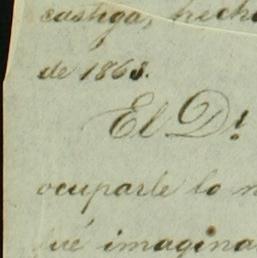 castiga, hech
de 1868.
El Dr.
ocuparle lo n
ué imagina